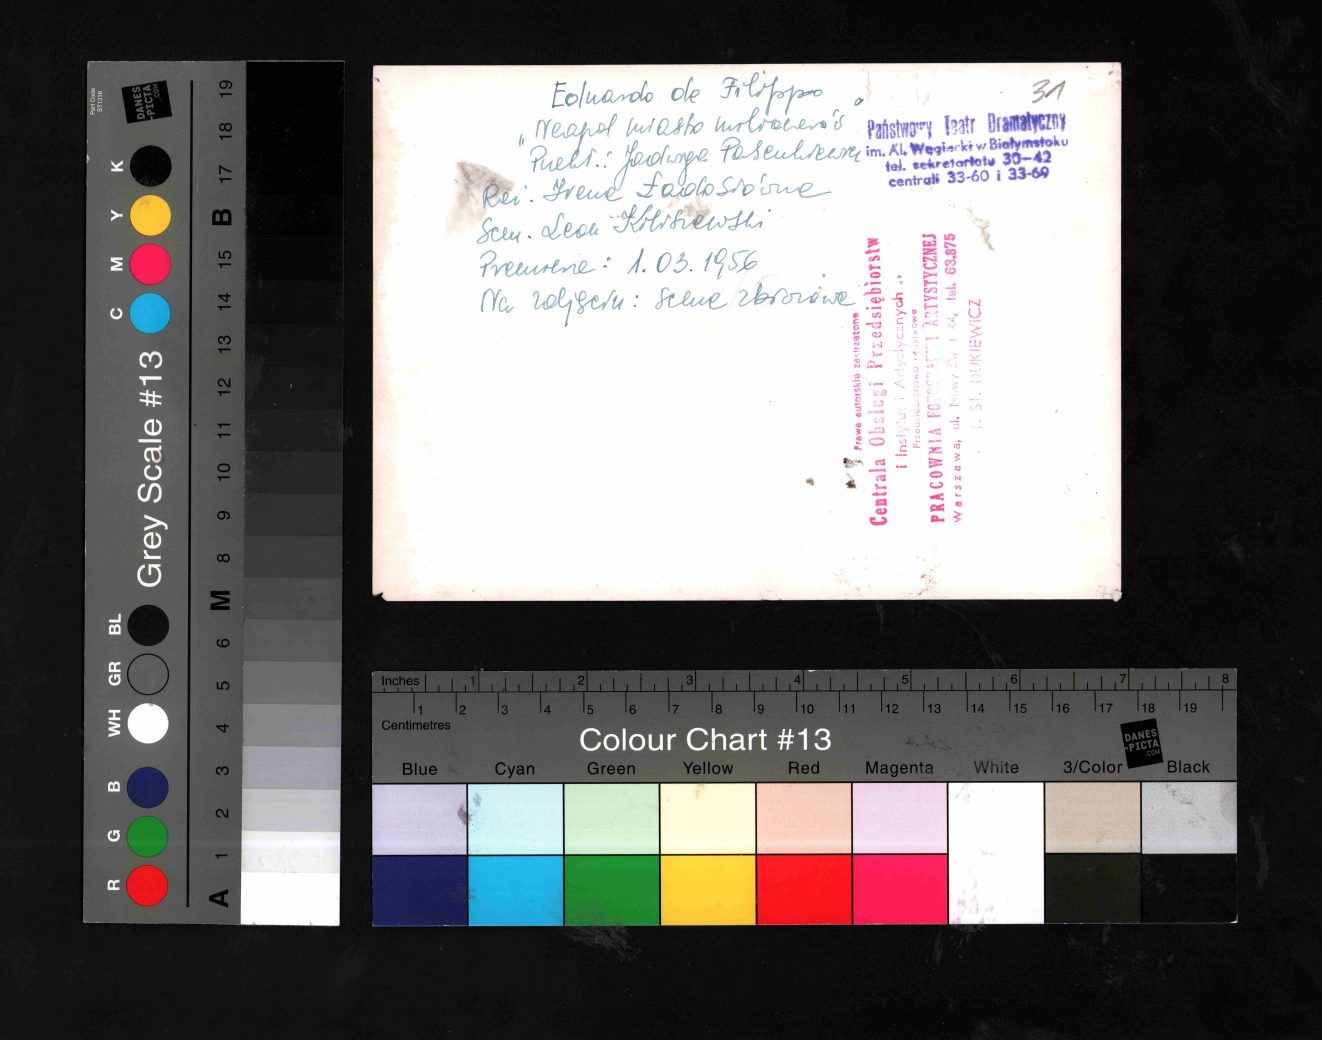 Eduardo de Filippo
„Neapol miasto milionerów"
Przekł.: Jadwiga Pasenkiewicz
Reż. Irena Ładosiówna
Scen. Leon
Premiera: 1.03.1956
Na zdjęciu: scena zbiorowa
31
Państwowy Teatr Dramatyczny
im. Al. Węgierki w Białymstoku
tel. sekretariatu 30-42
centrali 33-60 i 33-69
Prawa autorskie zastrzeżone
Centrala Obsługi Przedsiębiorstw
i Instytucji Artystycznych
Przedsiębiorstwo Państwowe
PRACOWNIA FOTOGRAFII ARTYSTYCZNEJ
Warszawa, ul. Nowy Świat tel. 63.875
St. DUKIEWICZ
Part Code
ST1316
DANES
-PICTA
.COM
K
Y
M
C
Grey Scale #13
BL
GR
WH
B
G
R
A 1 2 3 4 5 6 M 8 9 10 11 12 13 14 15 B 17 18 19
Inches 1 2 3 4 5 6 7 8
Centimetres 1 2 3 4 5 6 7 8 9 10 11 12 13 14 15 16 17 18 19
Colour Chart #13
DANES
-PICTA
.COM
Blue Cyan Green Yellow Red Magenta White 3/Color Black